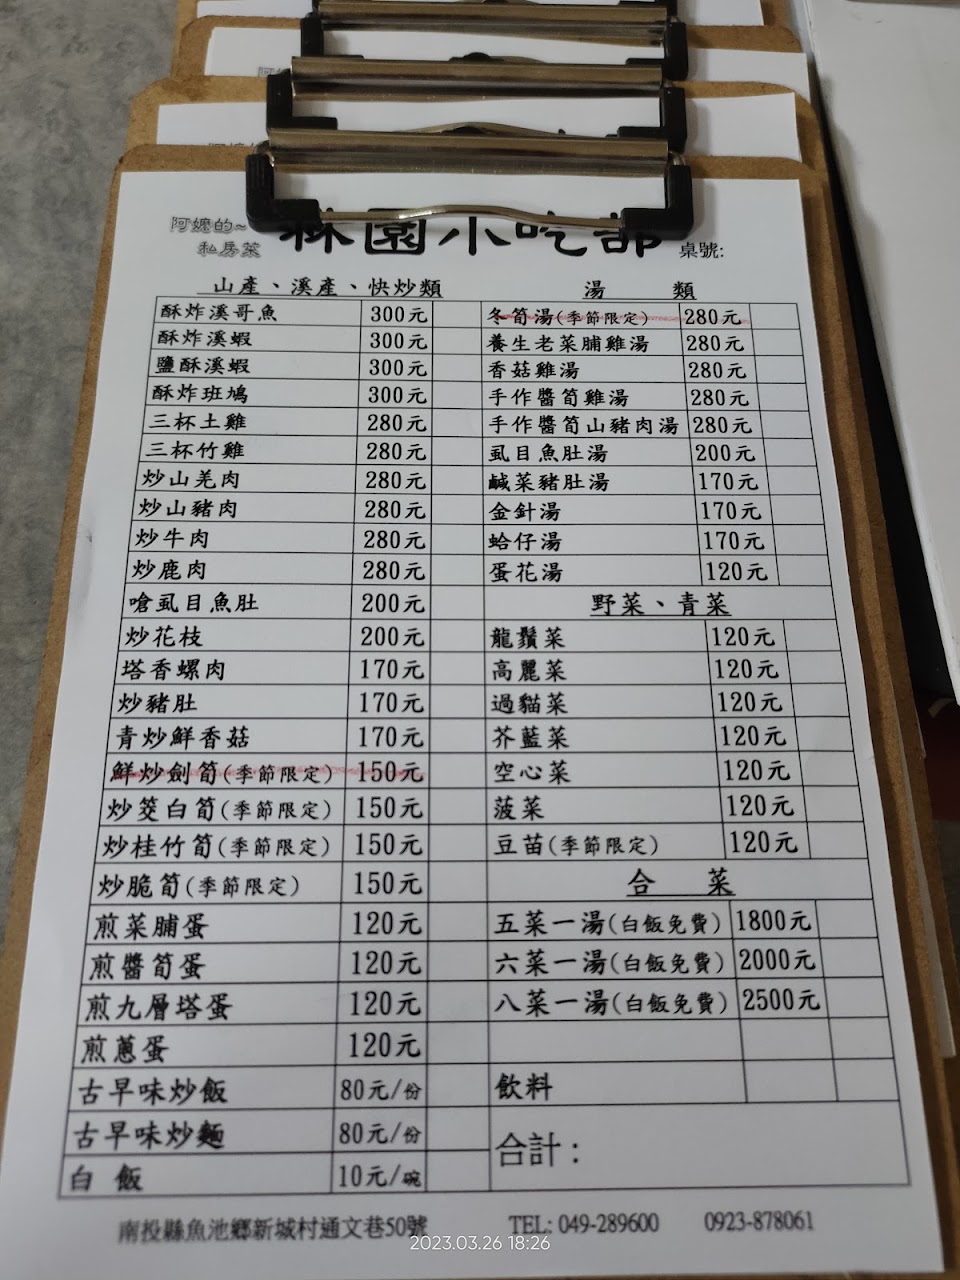 阿嬤的~
私房菜
林園小吃部
桌號:
山產、溪產、快炒類
酥炸溪哥魚 300元
酥炸溪蝦 300元
鹽酥溪蝦 300元
酥炸班鳩 300元
三杯土雞 280元
三杯竹雞 280元
炒山羌肉 280元
炒山豬肉 280元
炒牛肉 280元
炒鹿肉 280元
嗆虱目魚肚 200元
炒花枝 200元
塔香螺肉 170元
炒豬肚 170元
青炒鮮香菇 170元
鮮炒劍筍(季節限定) 150元
炒筊白筍(季節限定) 150元
炒桂竹筍(季節限定) 150元
炒脆筍(季節限定) 150元
煎菜脯蛋 120元
煎醬筍蛋 120元
煎九層塔蛋 120元
煎蔥蛋 120元
古早味炒飯 80元/份
古早味炒麵 80元/份
白飯 10元/碗
湯類
冬筍湯(季節限定) 280元
養生老菜脯雞湯 280元
香菇雞湯 280元
手作醬筍雞湯 280元
手作醬筍山豬肉湯 280元
虱目魚肚湯 200元
鹹菜豬肚湯 170元
金針湯 170元
蛤仔湯 170元
蛋花湯 120元
野菜、青菜
龍鬚菜 120元
高麗菜 120元
過貓菜 120元
芥藍菜 120元
空心菜 120元
菠菜 120元
豆苗(季節限定) 120元
合菜
五菜一湯(白飯免費) 1800元
六菜一湯(白飯免費) 2000元
八菜一湯(白飯免費) 2500元
飲料
合計：
南投縣魚池鄉新城村通文巷50號 TEL: 049-289600 0923-878061
2023.03.26 18:26